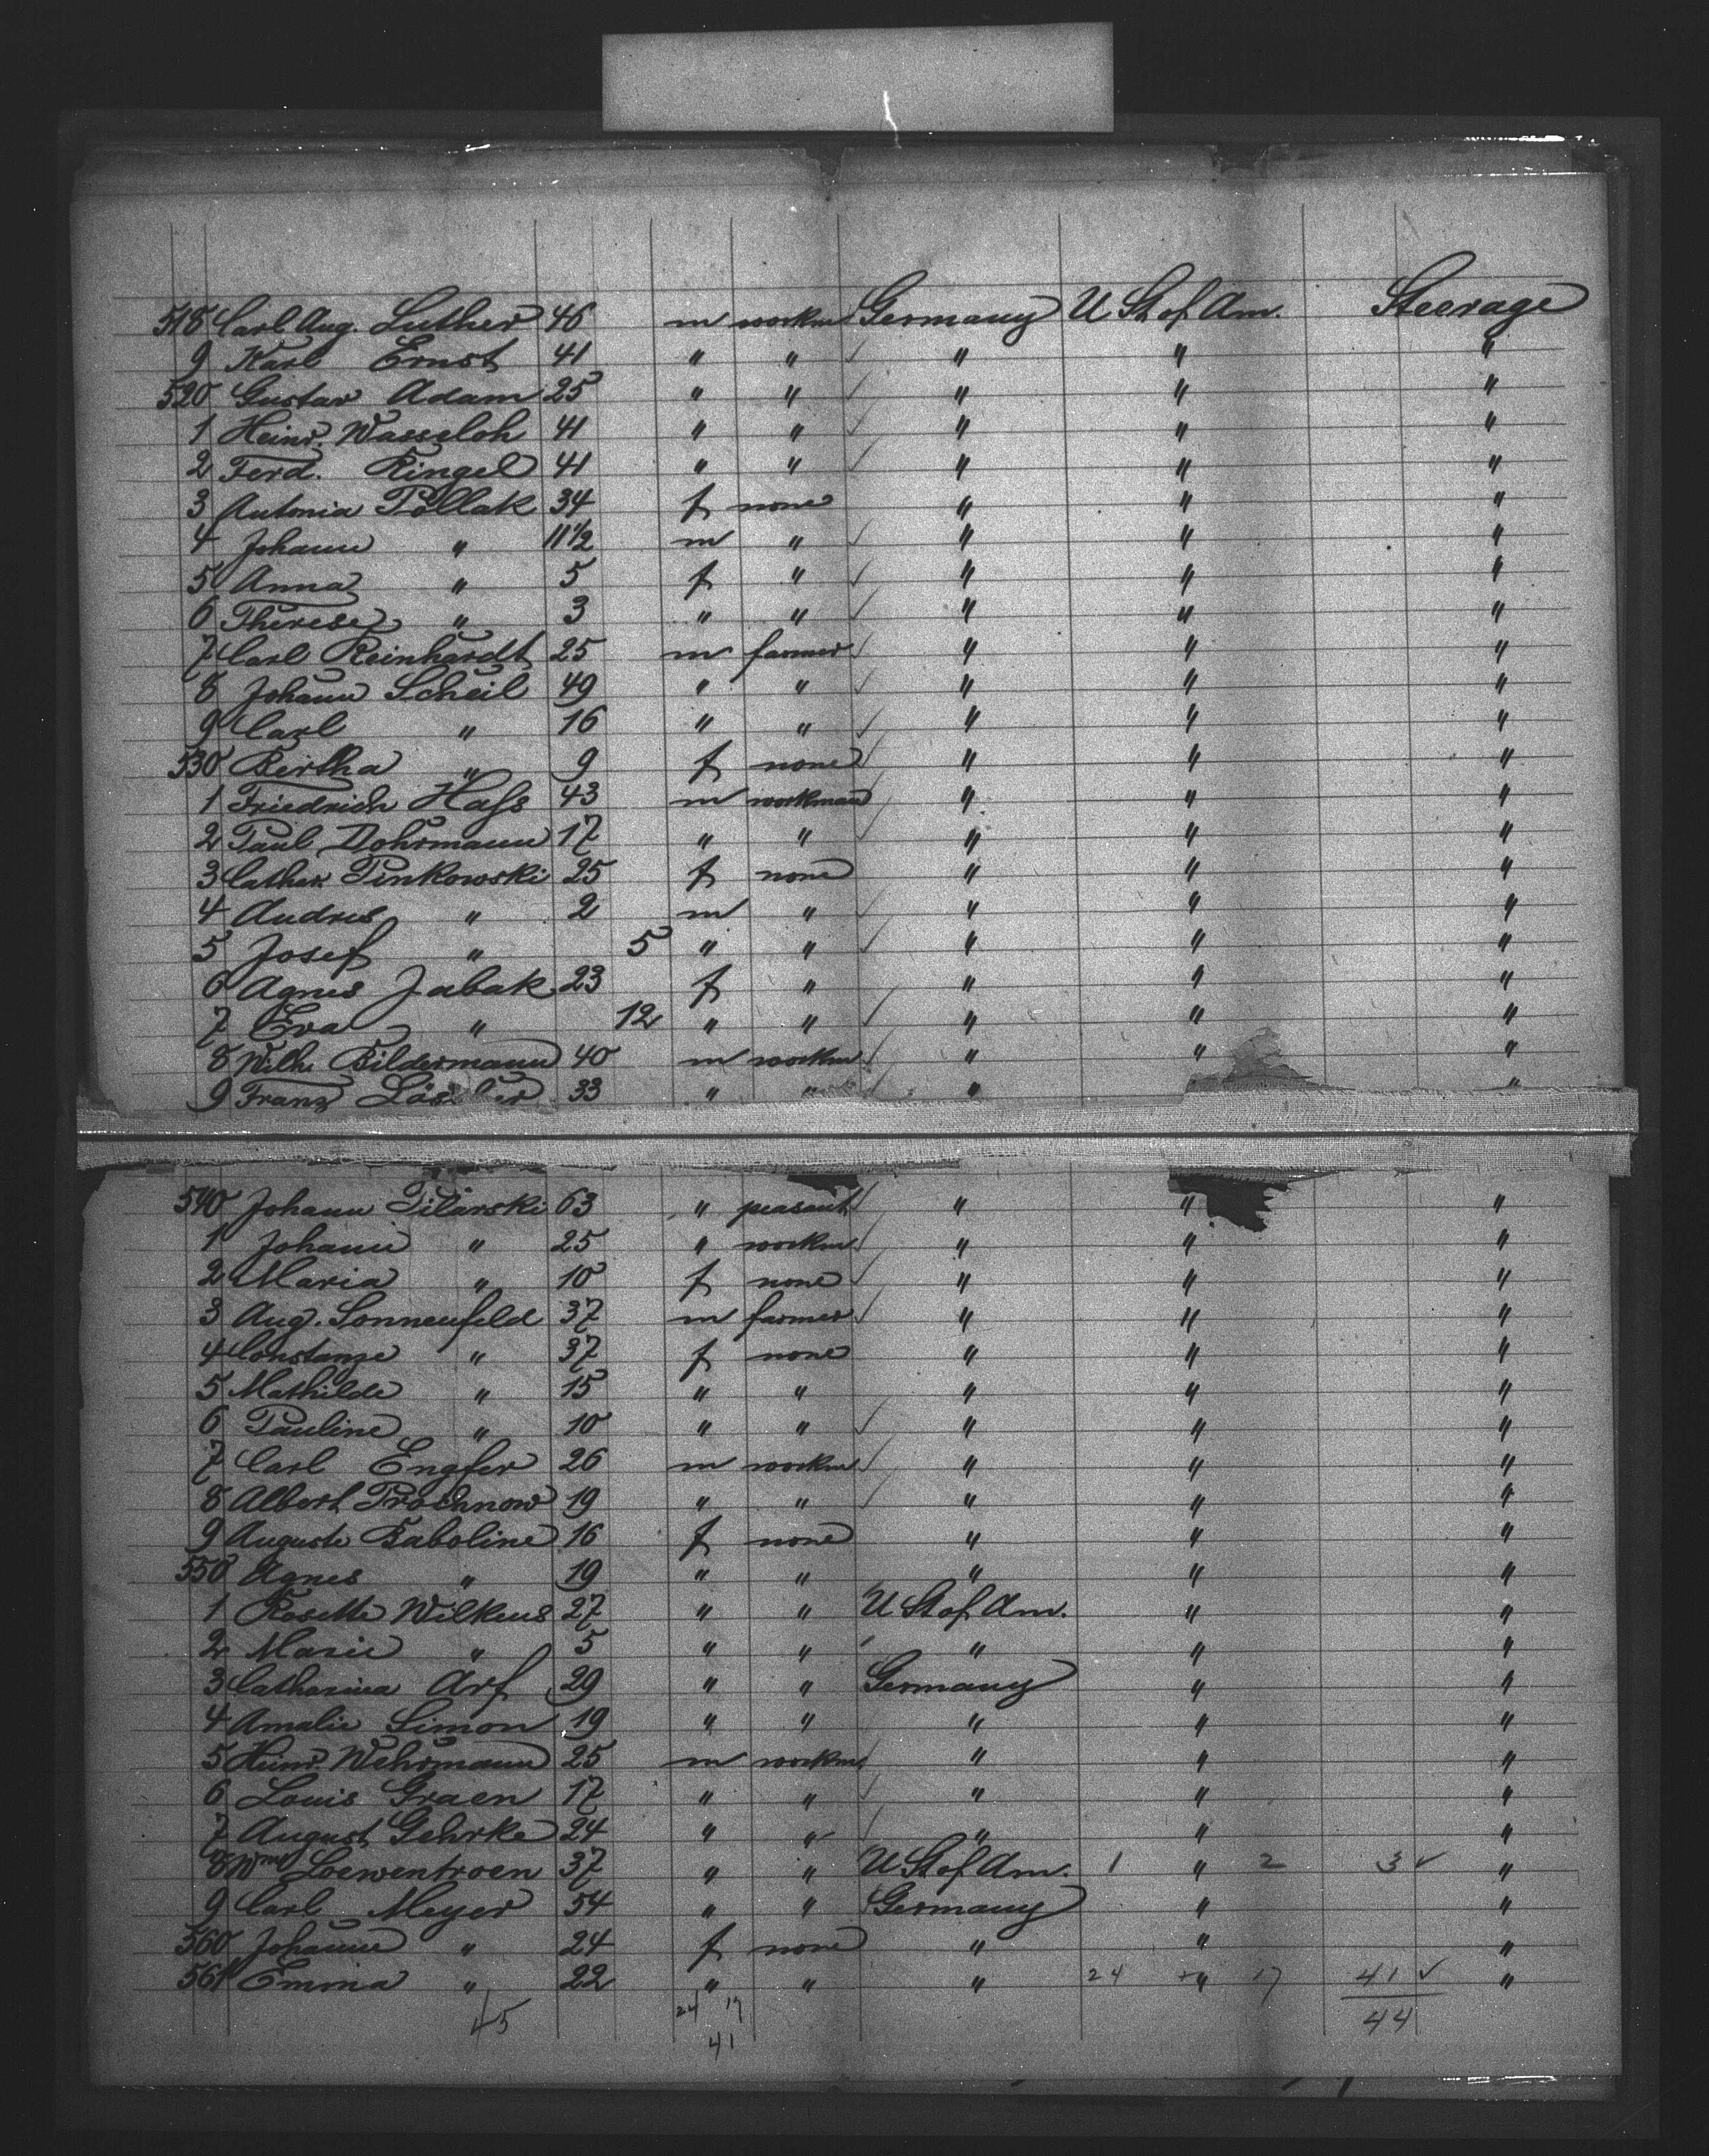 518 Carl Aug. Luther 46 m workm Germany U St of Am. Steerage
9 Karl Ernst 41 " " " " "
520 Gustav Adam 25 " " " " "
1 Heinr. Wasseloh 41 " " " " "
2 Ferd. Ringel 41 " " " " "
3 Antonia Pollak 34 f none " " "
4 Johann " 11 1/2 m " " " "
5 Anna " 5 f " " " "
6 Therese " 3 " " " " "
7 Carl Reinhardt 25 m farmer " " "
8 Johann Scheil 49 " " " " "
9 Carl " 16 " " " " "
530 Bertha " 9 f none " " "
1 Friedrich Hass 43 m workman " " "
2 Paul Dohrmann 17 " " " " "
3 Cather. Pinkowski 25 f none " " "
4 Andres " 2 m " " " "
5 Josef " 5 " " " " "
6 Agnes Jabak 23 f " " " "
7 Eva " 12 " " " " "
8 Wilh. Bildermann 40 m workm " " "
9 Franz 33 " " " " "
540 Johann Pilarski 63 " peasant " " "
1 Johann " 25 " workm " " "
2 Maria " 10 f none " " "
3 Aug. Sonnenfeld 37 m farmer " " "
4 Constanze " 37 f none " " "
5 Mathilde " 15 " " " " "
6 Pauline " 10 " " " " "
7 Carl Engfer 26 m workm " " "
8 Albert Prochnow 19 " " " " "
9 Auguste Baboline 16 f none " " "
550 Agnes " 19 " " " " "
1 Rosette Wilkens 27 " " U St of Am. " "
2 Marie " 5 " " " " "
3 Catharina Arf 29 " " Germany " "
4 Amalie Simon 19 " " " " "
5 Heinr. Wehrmann 25 m workm " " "
6 Louis Graen 17 " " " " "
7 August Gehrke 24 " " " " "
8 Wm Loewentroen 37 " " U St of Am. 1 " 2 3 ✓ "
9 Carl Meyer 54 " " Germany " "
560 Johanne " 24 f none " " "
561 Emma " 22 " " " 24 " 17 41 ✓ "
45 24 17 44
41